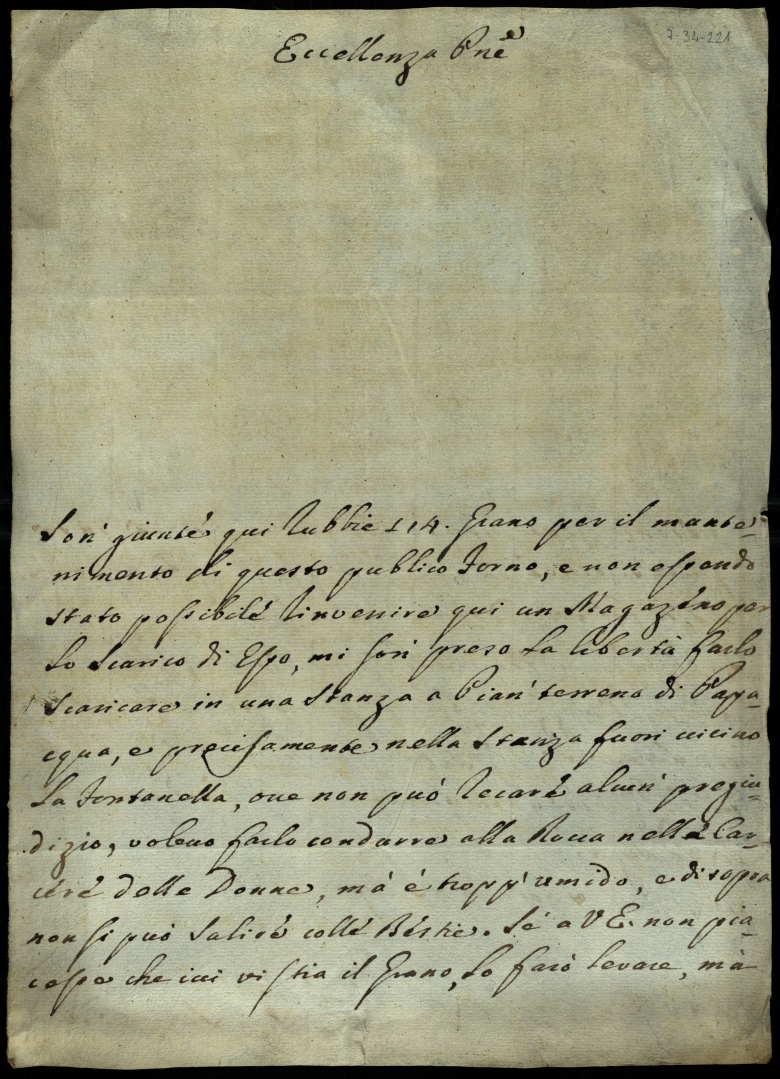 7-34-221
Eccellenza Pne
Son' giunte qui Rubbie 114. Grano per il mante-
nimento di questo publico Forno, e non essendo
stato possibile rinvenire qui un Magazéno per
lo scarico di Esso, mi son' preso la libertà farlo
scaricare in una Stanza a Pian' terreno di Papa-
cqua, e precisamente nella Stanza fuori vicino
la Fontanella, ove non può recare alcun' pregiu-
dizio, volevo farlo condurre alla Rocca nelle Car-
ceré delle Donne, mà é tropp' umido, e di sopra
non si può salire colle Bestie. Sé a V E. non pia-
cesse che ivi vi stia il Grano, lo farò levare, mà